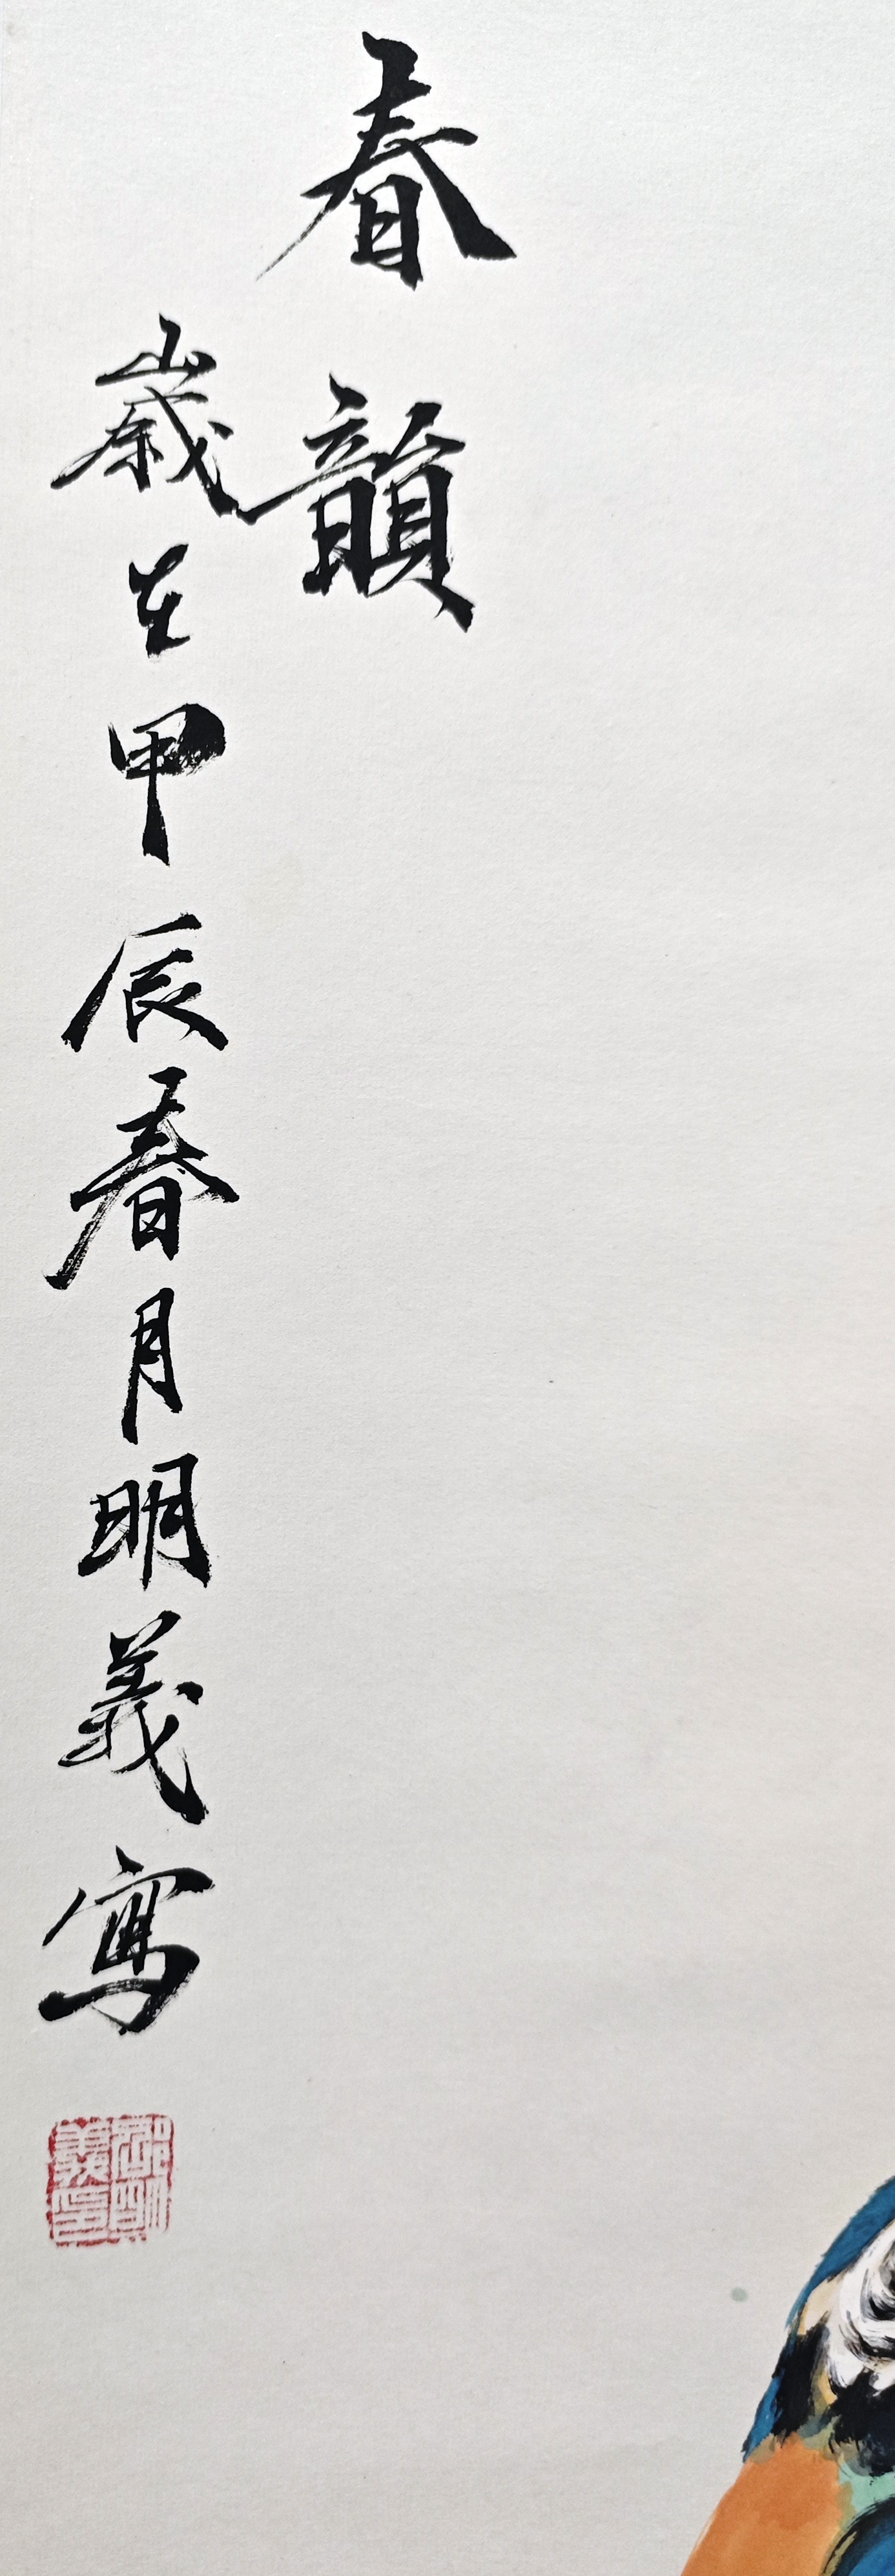 春韻
歲在甲辰春月明義寫